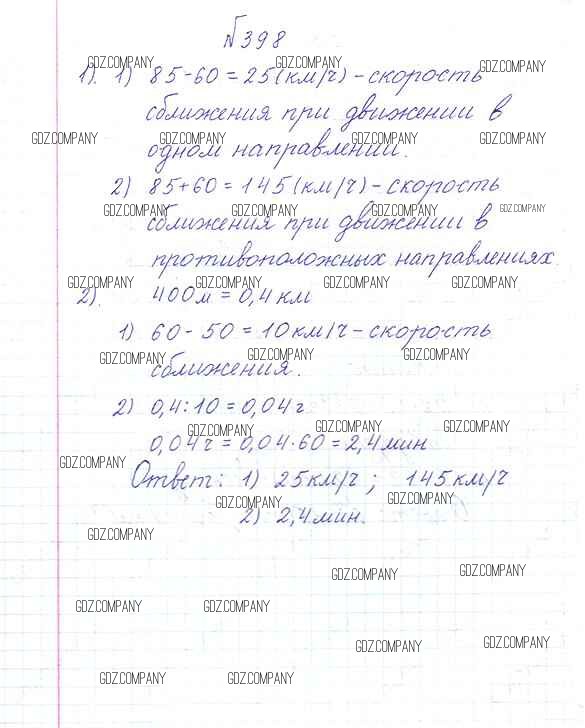 №398
1). 1) 85-60=25(км/ч)-скорость
сближения при движении в
одном направлении.
2) 85+60=145(км/ч)-скорость
сближения при движении в
противоположных направлениях.
2). 400м=0,4км
1) 60-50=10км/ч-скорость
сближения.
2) 0,4:10=0,04ч
0,04ч=0,04·60=2,4мин
Ответ: 1) 25км/ч; 145км/ч
2) 2,4мин.
GDZ.COMPANY GDZ.COMPANY GDZ.COMPANY
GDZ.COMPANY GDZ.COMPANY GDZ.COMPANY GDZ.COMPANY
GDZ.COMPANY GDZ.COMPANY GDZ.COMPANY GDZ.COMPANY
GDZ.COMPANY GDZ.COMPANY GDZ.COMPANY GDZ.COMPANY
GDZ.COMPANY GDZ.COMPANY GDZ.COMPANY
GDZ.COMPANY GDZ.COMPANY GDZ.COMPANY
GDZ.COMPANY
GDZ.COMPANY GDZ.COMPANY
GDZ.COMPANY
GDZ.COMPANY GDZ.COMPANY
GDZ.COMPANY GDZ.COMPANY
GDZ.COMPANY GDZ.COMPANY
GDZ.COMPANY GDZ.COMPANY